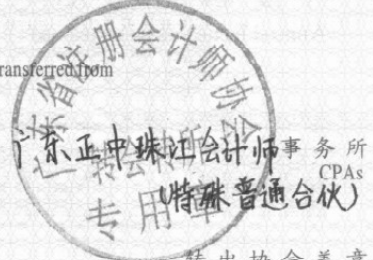 广东省注册会计师协会
transferred from
转会
专用章
广东正中珠江会计师事务所
CPAs
(特殊普通合伙)
转出协会盖章